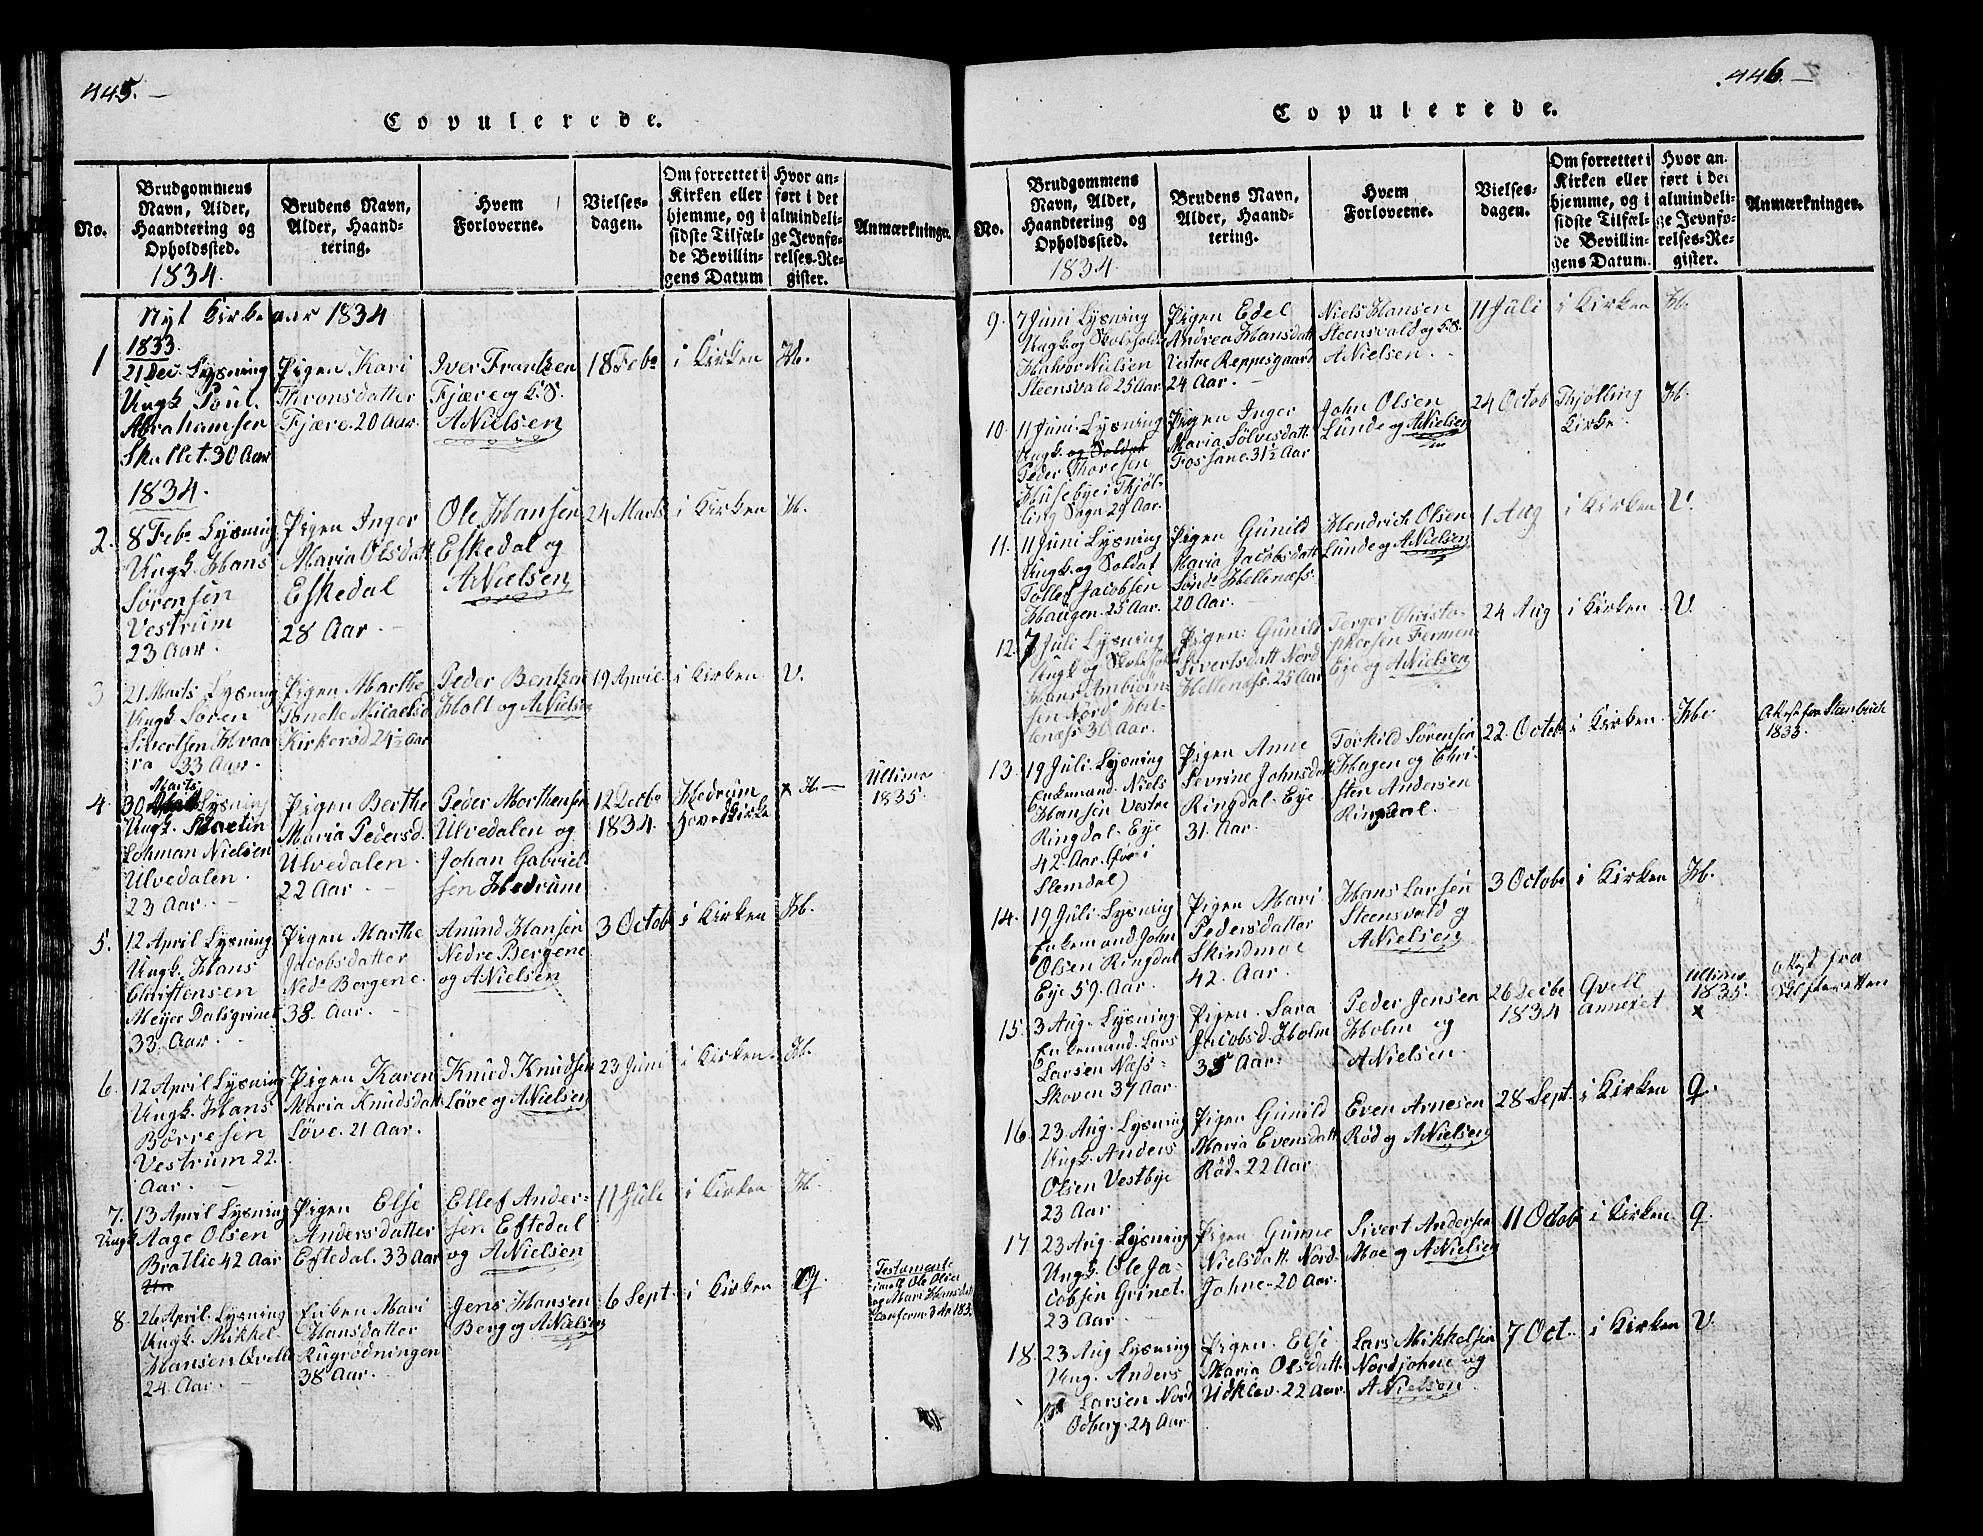 445.
Copulerede.
No.
Brudgommens Navn, Alder, Haandtering og Opholdssted.
1834.
Brudens Navn, Alder, Haandtering.
Hvem Forloverne.
Vielsesdagen.
Om forrettet i Kirken eller hjemme, og i sidste Tilfælde Bevillingens Datum
Hvor anført i det almindelige Jevnførelses-Register.
Anmærkninger.
Nyt Kirkeaar 1834
1833.
1
21 Dec. Lysning
Ungk. Poul
Abrahamsen
Skallet. 30 Aar
Pigen Kari
Fjære. 20 Aar.
Iver Frantzen
Fjære og K.S.
ANielsen
18 Feb.
i Kirken
H.
1834.
2.
8 Feb. Lysning
Ungk. Hans
Sørensen
Vestrum
23 Aar.
Pigen Inger
Maria Olsdatt.
Eskedal
28 Aar.
Ole Hansen
Eskedal og
ANielsen
24 Marts
i Kirken
H.
3
21 Marts Lysning
Ungk Søren
Sivertsen Hvaa
ra 33 Aar.
Pigen Marthe
Tonette Micaelsd
Kirkerød 24½ Aar
Peder Bentzen
Holt og ANielsen
19 April
i Kirken
V.
4.
Marts
30 Lysning
Ungk. Martin
Lohman Nielsen
Ulvedalen.
23 Aar.
Pigen Berthe
Maria Pedersd.
Ulvedalen.
22 Aar
Peder Morthensen
Ulvedalen og
Johan Gabriel
sen Hedrum
12 Decbr
1834.
Hedrum
Hovedkirke
x H.
Ultimo
1835.
5.
12 April Lysning
Ungk. Hans
Christensen
Meyer Dalsgrinet
33 Aar.
Pigen Marthe
Jacobsdatter
Ned. Bergene.
38 Aar.
Anund Hansen
Nedre Bergene
og ANielsen
3 Octob
i Kirken
H.
6.
12 April Lysning
Ungk. Hans
Børresen
Vestrum 22.
Aar.
Pigen Karen
Maria Knudsdatt
Løve. 21 Aar.
Knud Knudsen
Løve og ANielsen
23 Juni
i Kirken.
H.
7.
Ungk
13 April Lysning
Aage Olsen
Bratlie 42 Aar
Pigen Else
Andersdatter
Eftedal. 33 Aar
Ellef Ander-
sen Eftedal
og ANielsen
11 Juli
i Kirken
H.
8.
26 April. Lysning
Ungk. Mikkel
Hansen Qvelle
24 Aar.
Enken Mari
Hansdatter
Rugrødningen
38 Aar.
Jens Hansen
Berg og ANielsen
6 Sept.
i Kirken
Q.
Testamente
Ole Olsen
og Mari Hansdatt
446.
Copulerede.
No.
Brudgommens Navn, Alder, Haandtering og Opholdssted.
1834
Brudens Navn, Alder, Haandtering.
Hvem Forloverne.
Vielsesdagen.
Om forrettet i Kirken eller hjemme, og i sidste Tilfælde Bevillingens Datum.
Hvor anført i det almindelige Jevnførelses-Register.
Anmærkninger.
9.
7 Juni Lysning
Ungk. og
Halvor Nielsen
Steensvald 25 Aar
Pigen Edel
Andrea Hansdatt
Vestre Reppesgaard
24 Aar.
Niels Hansen
Steensvald og K.S.
ANielsen.
11 Juli
i Kirken
H.
10.
11 Juni Lysning
Ungk. og Soldat
Peder Thoresen
Husebye i Thjøl-
ling Sogn 29 Aar.
Pigen Inger
Maria Sølvesdatt.
Fossane. 31½ Aar
John Olsen
Lunde og ANielsen
24 Octob
Thjølling
Kirke.
H.
11.
11 Juni Lysning
Ungk. og Soldat
Tollef Jacobsen
Haugen. 25 Aar.
Pigen Gunild
Maria Jacobsdatt
Sønd. Hellenæss.
20 Aar.
Hendrich Olsen
Lunde og ANielsen
1 Aug
i Kirken
V.
12.
7 Juli Lysning
Ungk og
Hans Ambiørn-
sen Nord. Hel-
lenæss. 30 Aar.
Pigen: Gunild
Sivertsdatt Nord
Hellenæss. 25 Aar
Torger Christo-
phersen Femmen
Eje og ANielsen
24 Aug
i Kirken
V.
13.
19 Juli. Lysning
Enkemand. Niels
Hansen Vestre
Ringdal-Eje
42 Aar. (født i
Slemdal)
Pigen Anne
Sevrine Johnsdatt
Ringdal-Eje
31. Aar.
Torkild Sørensen
Hagen og Chri-
sten Andersen
Ringdal.
22. Octob
i Kirken.
H.
Attest fra
1835.
14.
19 Juli. Lysning
Enkemand John
Olsen Ringdal
Eje 59. Aar.
Pigen Mari
Pedersdatter
Skindmoe
42. Aar.
Hans Larsen
Steensvald og
ANielsen
3 Octobr
i Kirken
H.
15.
3 Aug. Lysning
Enkemand. Lars
Larsen Næss-
Skoven 37 Aar.
Pigen. Sara
Jacobsd. Holm
35 Aar.
Peder Jensen
Holm og
ANielsen.
26 Decbr
1834
Qvell
Annexet
Ultimo
1835.
x
Attest fra
Skifteretten
16.
23. Aug. Lysning
Ungk. Anders
Olsen Vestbye
23 Aar
Pigen Gunild
Maria Evensdatt
Rød. 22 Aar
Even Arnesen
Rød og ANielsen
28 Sept.
i Kirken
Q.
17
23 Aug. Lysning
Ungk. Ole Ja-
cobsen Grinet.
23 Aar
Pigen Gunne
Nielsdatt Nord-
Jahne. 20 Aar.
Sivert Andersen
Moe og ANielsen
11 Octob
i Kirken.
Q.
18.
23 Aug Lysning
Ung. Anders
Larsen Nord
Odberg. 24 Aar
Pigen. Else
Maria Olsdatt.
Udklev. 22 Aar.
Lars Mikkelsen
Nordjahne og
ANielsen.
7 Oct.
i Kirken
V.